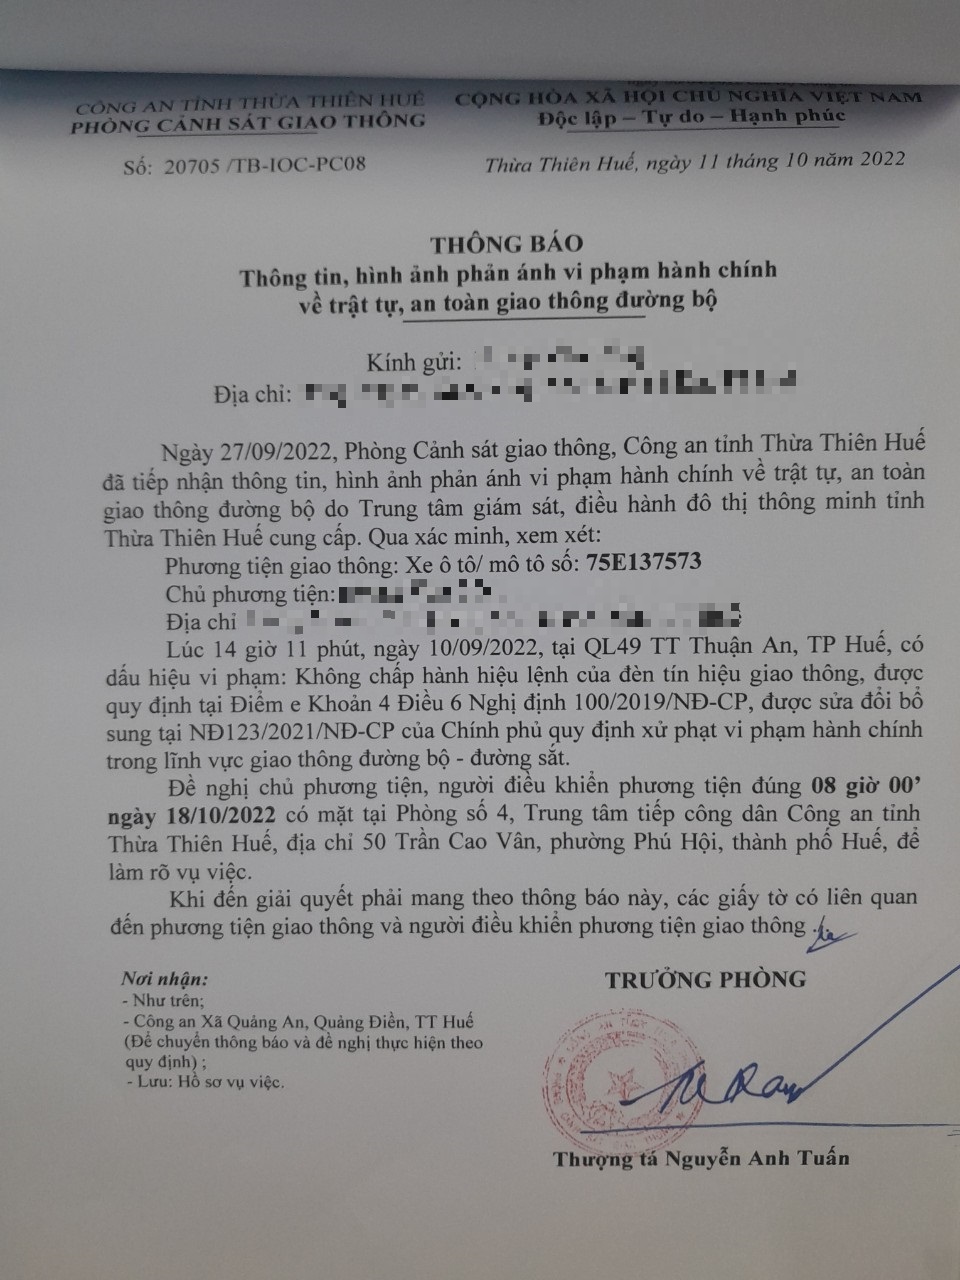 CÔNG AN TỈNH THỪA THIÊN HUẾ
PHÒNG CẢNH SÁT GIAO THÔNG
CỘNG HÒA XÃ HỘI CHỦ NGHĨA VIỆT NAM
Độc lập – Tự do – Hạnh phúc
Số: 20705 /TB-IOC-PC08
Thừa Thiên Huế, ngày 11 tháng 10 năm 2022
THÔNG BÁO
Thông tin, hình ảnh phản ánh vi phạm hành chính
về trật tự, an toàn giao thông đường bộ
Kính gửi:
Địa chỉ:
Ngày 27/09/2022, Phòng Cảnh sát giao thông, Công an tỉnh Thừa Thiên Huế
đã tiếp nhận thông tin, hình ảnh phản ánh vi phạm hành chính về trật tự, an toàn
giao thông đường bộ do Trung tâm giám sát, điều hành đô thị thông minh tỉnh
Thừa Thiên Huế cung cấp. Qua xác minh, xem xét:
Phương tiện giao thông: Xe ô tô/ mô tô số: 75E137573
Chủ phương tiện:
Địa chỉ
Lúc 14 giờ 11 phút, ngày 10/09/2022, tại QL49 TT Thuận An, TP Huế, có
dấu hiệu vi phạm: Không chấp hành hiệu lệnh của đèn tín hiệu giao thông, được
quy định tại Điểm e Khoản 4 Điều 6 Nghị định 100/2019/NĐ-CP, được sửa đổi bổ
sung tại NĐ123/2021/NĐ-CP của Chính phủ quy định xử phạt vi phạm hành chính
trong lĩnh vực giao thông đường bộ - đường sắt.
Đề nghị chủ phương tiện, người điều khiển phương tiện đúng 08 giờ 00’
ngày 18/10/2022 có mặt tại Phòng số 4, Trung tâm tiếp công dân Công an tỉnh
Thừa Thiên Huế, địa chỉ 50 Trần Cao Vân, phường Phú Hội, thành phố Huế, để
làm rõ vụ việc.
Khi đến giải quyết phải mang theo thông báo này, các giấy tờ có liên quan
đến phương tiện giao thông và người điều khiển phương tiện giao thông
Nơi nhận:
- Như trên;
- Công an Xã Quảng An, Quảng Điền, TT Huế
(Để chuyển thông báo và đề nghị thực hiện theo
quy định) ;
- Lưu: Hồ sơ vụ việc.
TRƯỞNG PHÒNG
Thượng tá Nguyễn Anh Tuấn